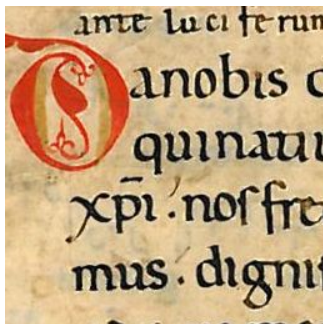 ante luciferum
Da nobis
qui
xp̄i. nos fre
mus. digni